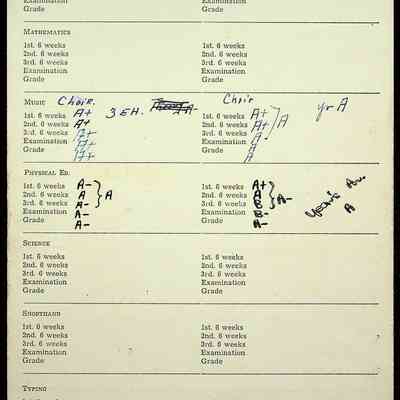 Examination Examination
Grade Grade
MATHEMATICS
1st. 6 weeks 1st. 6 weeks
2nd. 6 weeks 2nd. 6 weeks
3rd. 6 weeks 3rd. 6 weeks
Examination Examination
Grade Grade
MUSIC Choir. Choir
1st. 6 weeks A+ 3 EH. 1st. 6 weeks A+ yr A
2nd. 6 weeks A+ 2nd. 6 weeks A+ } A
3rd. 6 weeks A+ 3rd. 6 weeks A
Examination A+ Examination A
Grade A+ Grade A
PHYSICAL ED.
1st. 6 weeks A- 1st. 6 weeks A+
2nd. 6 weeks A } A 2nd. 6 weeks A } A-
3rd. 6 weeks A- 3rd. 6 weeks B
Examination A- Examination B- A
Grade A- Grade A-
SCIENCE
1st. 6 weeks 1st. 6 weeks
2nd. 6 weeks 2nd. 6 weeks
3rd. 6 weeks 3rd. 6 weeks
Examination Examination
Grade Grade
SHORTHAND
1st. 6 weeks 1st. 6 weeks
2nd. 6 weeks 2nd. 6 weeks
3rd. 6 weeks 3rd. 6 weeks
Examination Examination
Grade Grade
TYPING